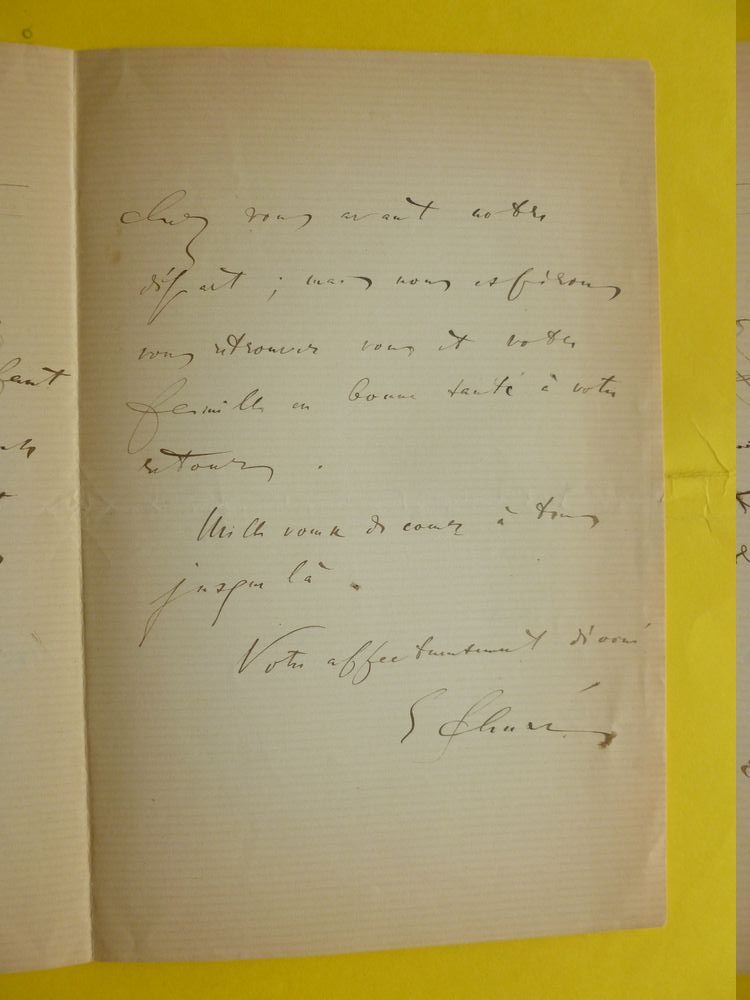 chez vous avant notre
départ ; mais nous espérons
vous retrouver vous et votre
famille en bonne santé à votre
retour.
Mille vœux de cœur à tous
jusque là.
Votre affectueusement dévoué
E Schuré
fant